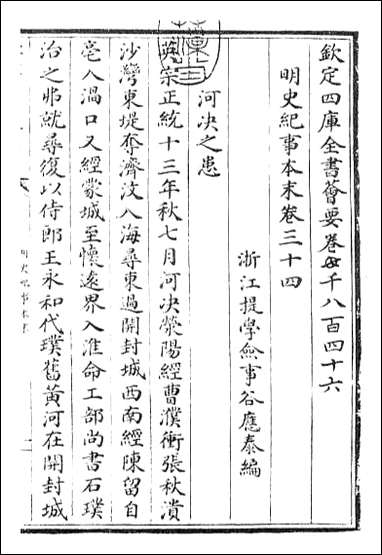 欽定四庫全書薈要卷四千八百四十六
明史紀事本末卷三十四
浙江提學僉事谷應泰編
河决之患
英宗正統十三年秋七月河决滎陽經曹濮衝張秋潰
沙灣東堤奪濟汶入海尋東過開封城西南經陳留自
亳入渦口又經蒙城至懷遠界入淮命工部尚書石璞
治之弗就尋復以侍郎王永和代璞舊黃河在開封城